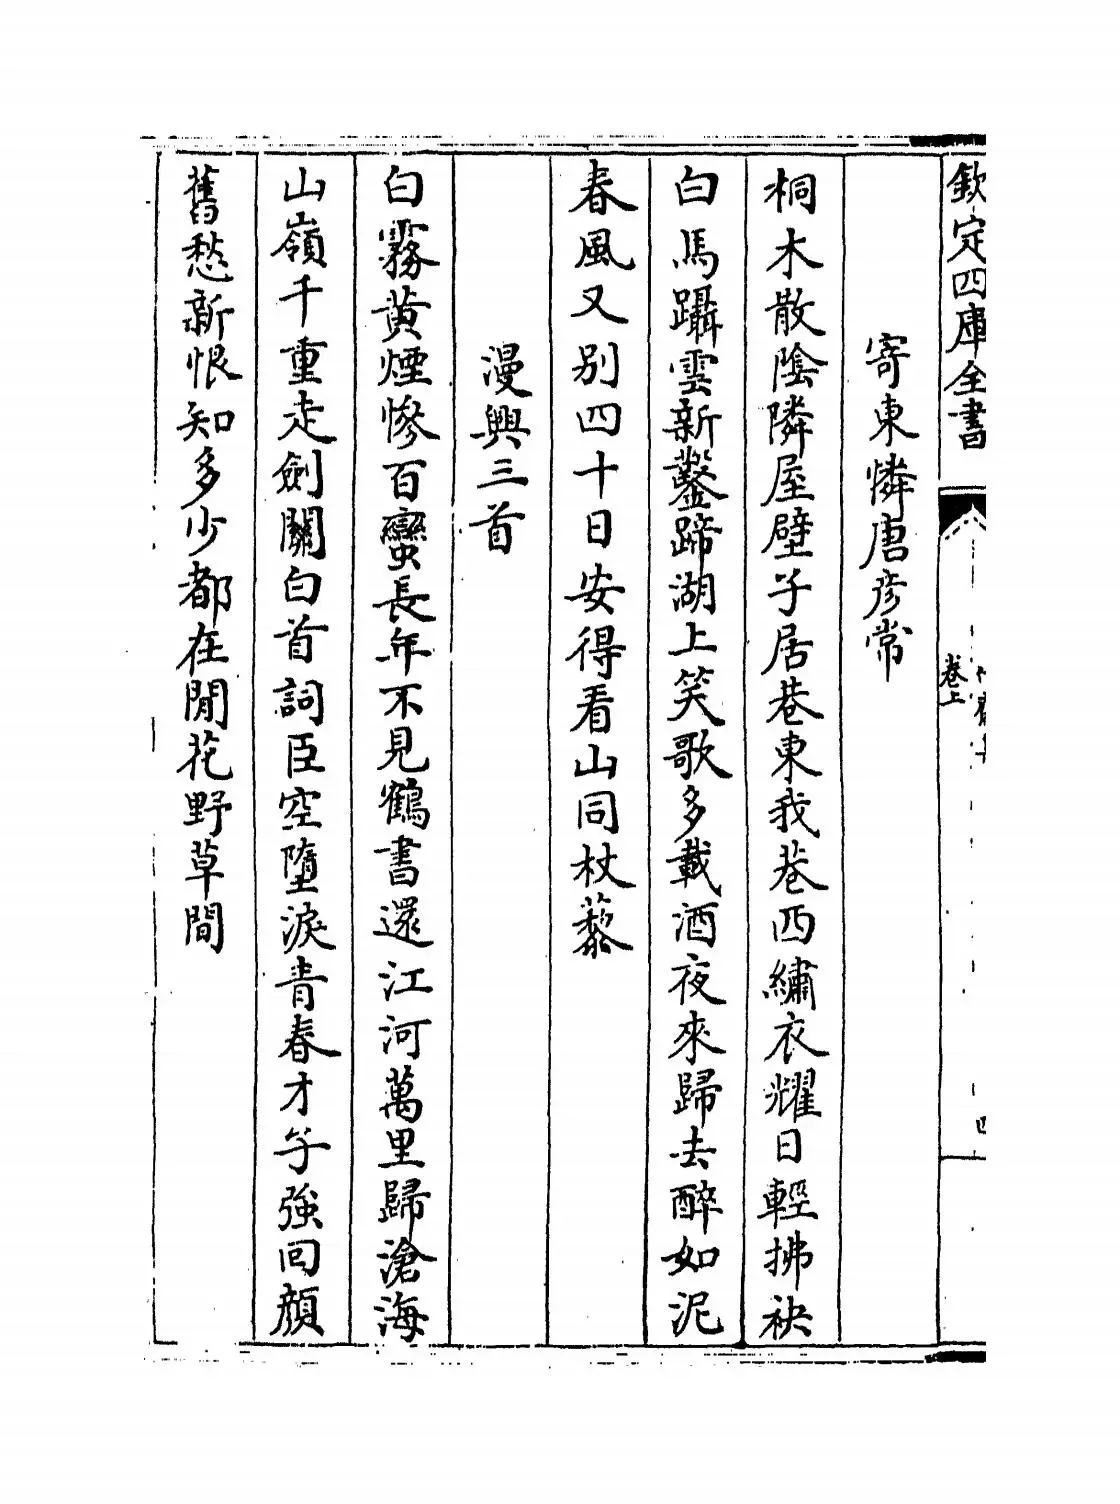 欽定四庫全書
卷上
四
寄東憐唐彦常
桐木散陰隣屋壁子居巷東我巷西繡衣耀日輕拂袂
白馬躡雲新鑿蹄湖上笑歌多載酒夜來歸去醉如泥
春風又别四十日安得看山同杖藜
漫興三首
白霧黄煙惨百蠻長年不見鶴書還江河萬里歸滄海
山嶺千重走劍關白首詞臣空墮淚青春才子強回顔
舊愁新恨知多少都在閒花野草間